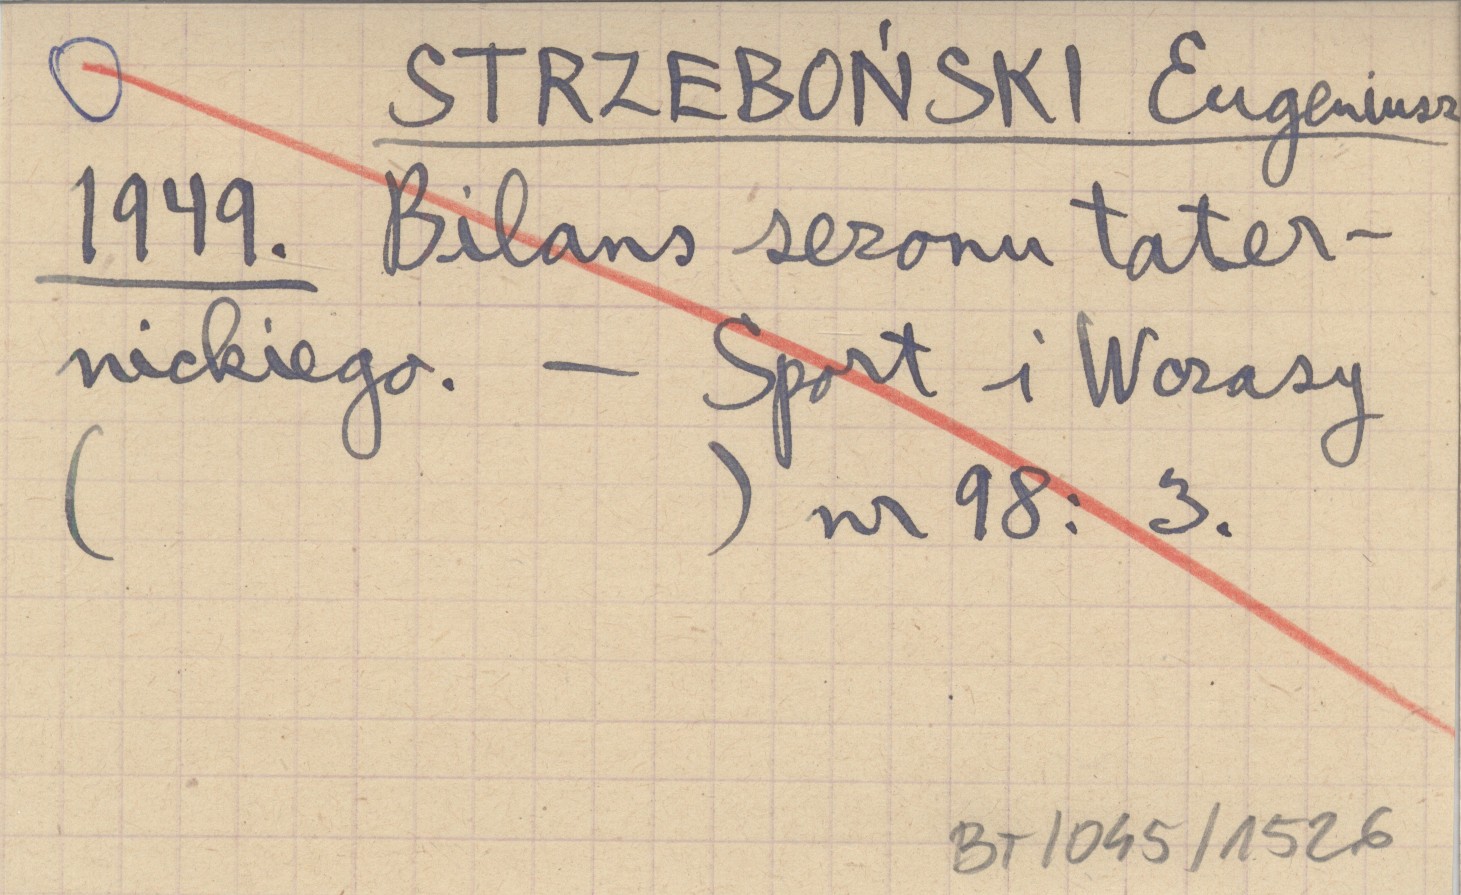 STRZEBOŃSKI Eugeniusz
1949. Bilans sezonu tater-
nickiego. — Sport i Wczasy
( ) nr 98: 3.
BT/045/1526